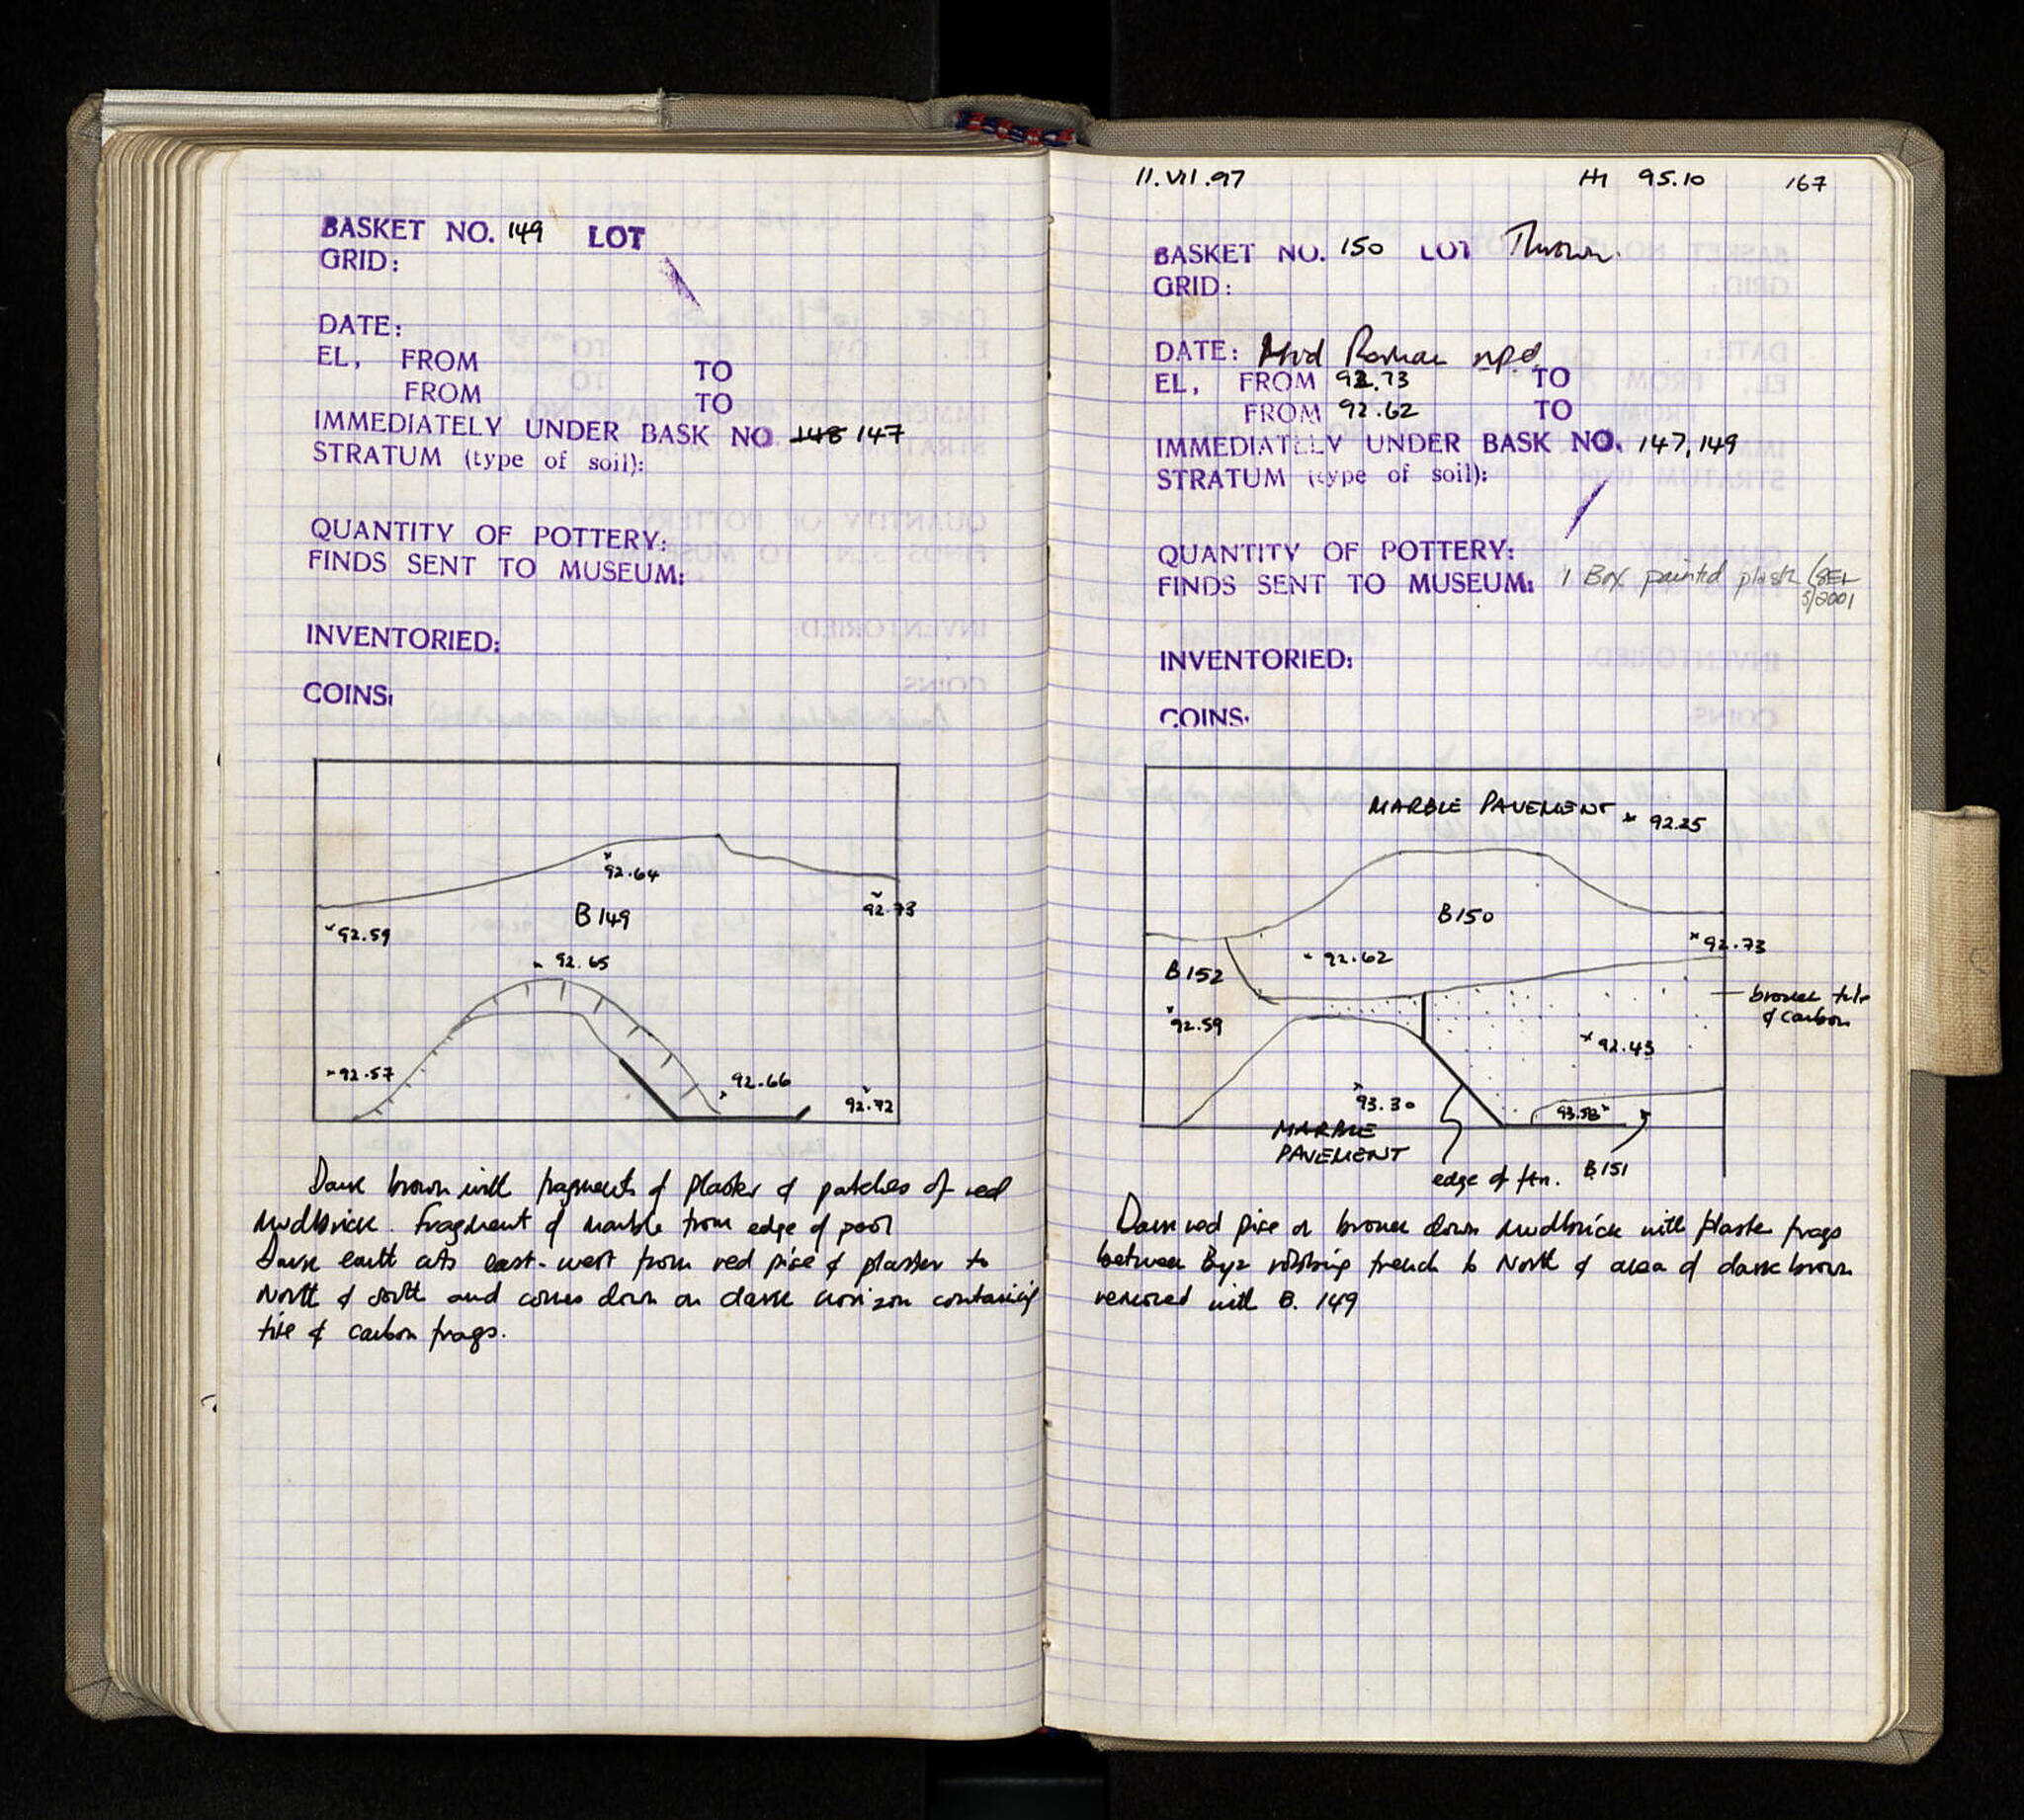 BASKET NO. 149 LOT
GRID:
DATE:
EL, FROM TO
FROM TO
IMMEDIATELY UNDER BASK NO 148 147
STRATUM (type of soil):
QUANTITY OF POTTERY:
FINDS SENT TO MUSEUM:
INVENTORIED:
COINS:
92.64
92.59
B149
92.73
92.65
92.57
92.66
92.72
Dark brown with fragments of plaster & patches of red
mudbrick. Fragment of marble from edge of pool
Dark earth cuts east-west from red pise & plaster to
North & south and comes down on dark horizon containing
tile & carbon frags.
11.VII.97 95.10 167
BASKET NO. 150 LOT Thrown.
GRID:
DATE: Mid Roman npd
EL, FROM 92.73 TO
FROM 92.62 TO
IMMEDIATELY UNDER BASK NO. 147, 149
STRATUM (type of soil):
QUANTITY OF POTTERY:
FINDS SENT TO MUSEUM: 1 Box painted plastr (GEL
5/2001
INVENTORIED:
COINS.
MARBLE PAVEMENT 92.25
B150
92.73
B152
92.62
92.59
broken tile
& carbon
92.43
93.30
93.53
MARBLE
PAVEMENT
edge of ftn. B151
Dark red pise or broken down mudbrick with plaster frags
between Byz robbing trench to North & area of dark brown
removed with B. 149